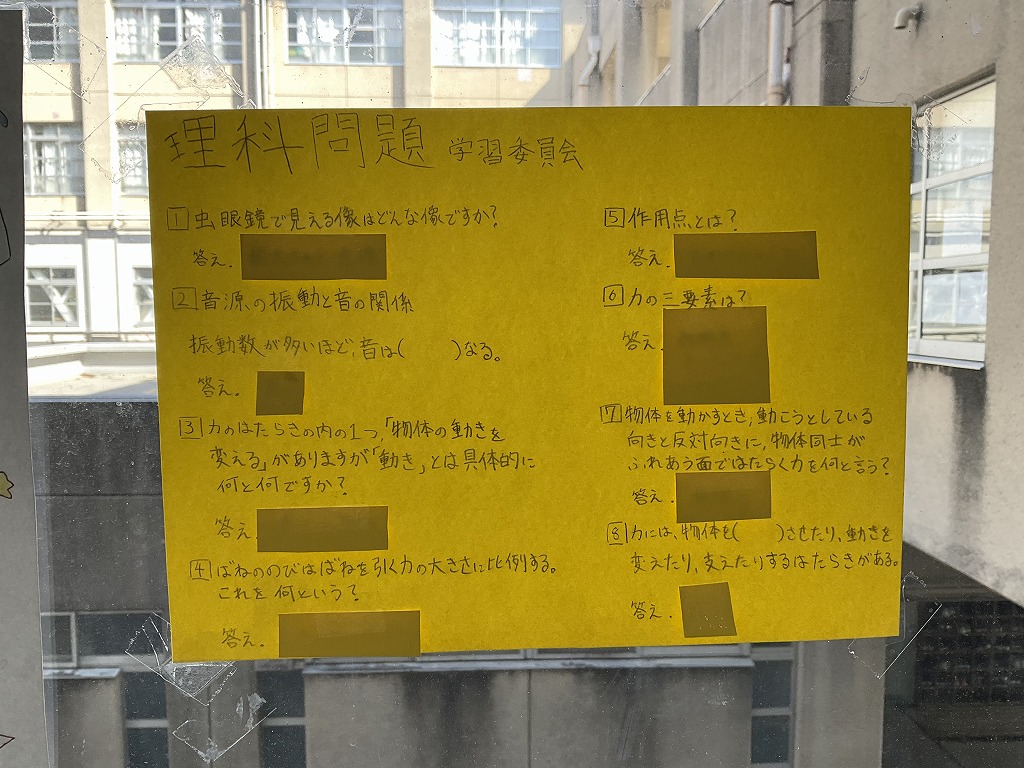 理科問題 学習委員会
1 虫眼鏡で見える像はどんな像ですか?
答え.
2 音源の振動と音の関係
振動数が多いほど、音は( )なる。
答え.
3 力のはたらきの内の1つ、「物体の動きを
変える」がありますが「動き」とは具体的に
何と何ですか?
答え.
4 ばねののびはばねを引く力の大きさに比例する。
これを何という?
答え.
5 作用点とは?
答え.
6 力の三要素は?
答え.
7 物体を動かすとき、動こうとしている
向きと反対向きに、物体同士が
ふれあう面ではたらく力を何と言う?
答え.
8 力には、物体を( )させたり、動きを
変えたり、支えたりするはたらきがある。
答え.